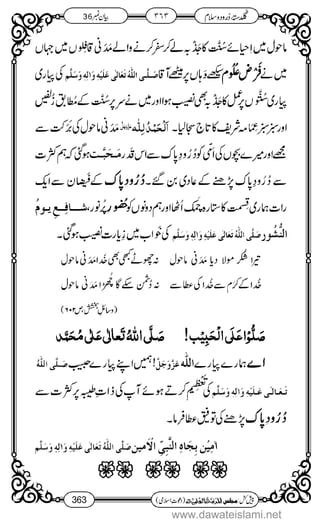 گلدستۂ درود و سلام ۳۶۳ بیان نمبر 36
ماحول میں اِحیائے سُنَّت کا جذبہ لے کر سفر کرنے والے مَدَنی قافِلوں میں جہاں
میں نے فرض عُلُوم سیکھے وہاں پر میٹھے آقا صَلَّی اللّٰہُ تَعَالٰی عَلَیْہِ وَاٰلِہٖ وَسَلَّم کی پیاری
پیاری سُنّتوں پر عمل کا جذبہ بھی نصیب ہوا اور میں نے سر پر سُنَّت کے مطابق زُلفیں
اور سبز سبز عمامہ شریف کا تاج سجا لیا۔ اَلْحَمْدُ لِلّٰہ مَدَنی ماحول کی بَرَکت سے
مجھے اور میرے بچوں کی امّی کو دُرُودِ پاک سے اس قدر مَحَبَّت ہو گئی کہ ہم کثرت
سے دُرُودِ پاک پڑھنے کے عادی بن گئے۔ دُرُودِ پاک کے فیضان سے ایک
رات ہماری قسمت کا ستارہ چمک اُٹھا اور ہم دونوں کو حُضُورِ پُرنور، شافِعِ یومُ
النُّشُور صَلَّی اللّٰہُ تَعَالٰی عَلَیْہِ وَاٰلِہٖ وَسَلَّم کی خواب میں زیارت نصیب ہو گئی۔
تیرا شکر مولا دیا مَدَنی ماحول نہ چھوٹے کبھی بھی خدا مَدَنی ماحول
خدا کے کرم سے خدا کی عطا سے نہ دُشمن سکے گا چُھڑا مَدَنی ماحول
(وسائلِ بخشش، ص ۶۰۲)
صَلُّوْا عَلَی الْحَبِیْب! صَلَّی اللّٰہُ تَعَالٰی عَلٰی مُحَمَّد
اے ہمارے پیارے اللّٰہ عَزَّوَجَلَّ! ہمیں اپنے پیارے حبیب صَلَّی اللّٰہُ
تَعَالٰی عَلَیْہِ وَاٰلِہٖ وَسَلَّم کی تعظیم کرتے ہوئے آپ کی ذاتِ طیبہ پر کثرت سے
دُرُودِ پاک پڑھنے کی توفیق عطا فرما۔
اٰمِیْن بِجَاہِ النَّبِیِّ الْاَمِیْن صَلَّی اللّٰہُ تَعَالٰی عَلَیْہِ وَاٰلِہٖ وَسَلَّم
پیش کش: مجلس اَلْمَدِیْنَۃُ الْعِلْمِیَّۃ (دعوتِ اسلامی) 363
www.dawateislami.net